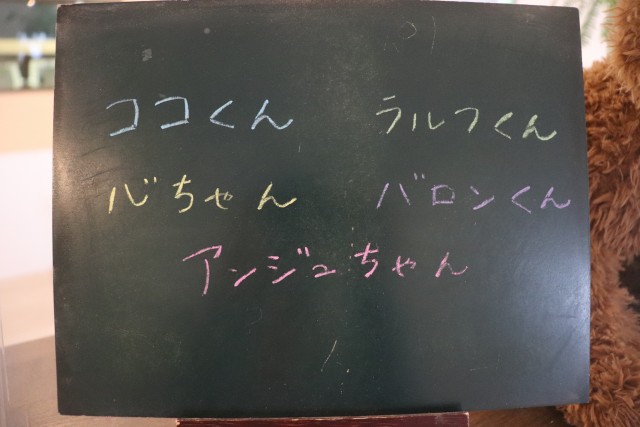 ココくん ラルフくん
心ちゃん バロンくん
アンジュちゃん